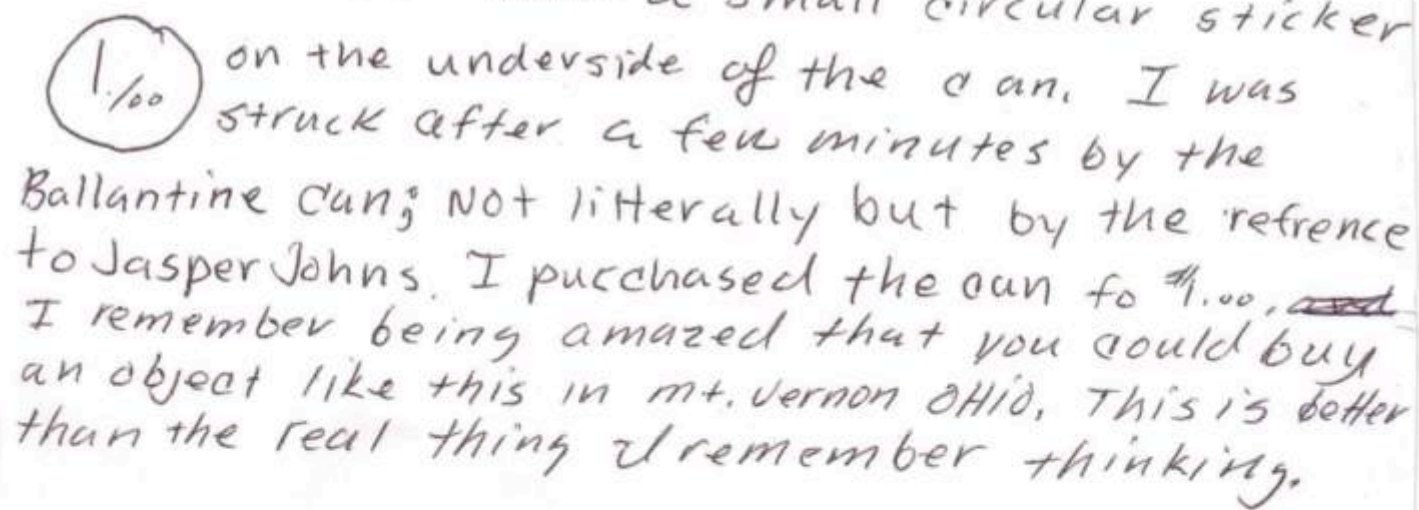 a small circular sticker
1.00 on the underside of the can. I was
struck after a few minutes by the
Ballantine can; Not litterally but by the refrence
to Jasper Johns. I purchased the can fo $1.00,
I remember being amazed that you could buy
an object like this in mt. vernon OHiO. This is better
than the real thing I remember thinking.